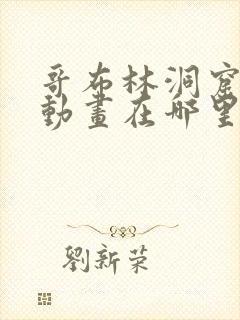 哥布林洞窟
動畫在哪里
劉新荣